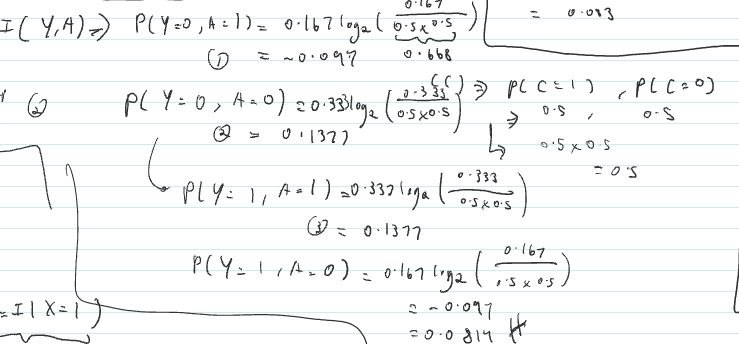 I(Y,A) => P(Y=0, A=1) = 0.167 log2 ( 0.167 / 0.5 x 0.5 ) = 0.083
① = -0.097 0.668
② P(Y=0, A=0) = 0.333 log2 ( 0.333 / 0.5 x 0.5 ) => P(C=1) , P(C=0)
② = 0.1377 => 0.5 , 0.5
0.5 x 0.5
= 0.5
P(Y=1, A=1) = 0.333 log2 ( 0.333 / 0.5 x 0.5 )
③ = 0.1377
P(Y=1, A=0) = 0.167 log2 ( 0.167 / 0.5 x 0.5 )
= -0.097
= I(X=1) = 0.0814